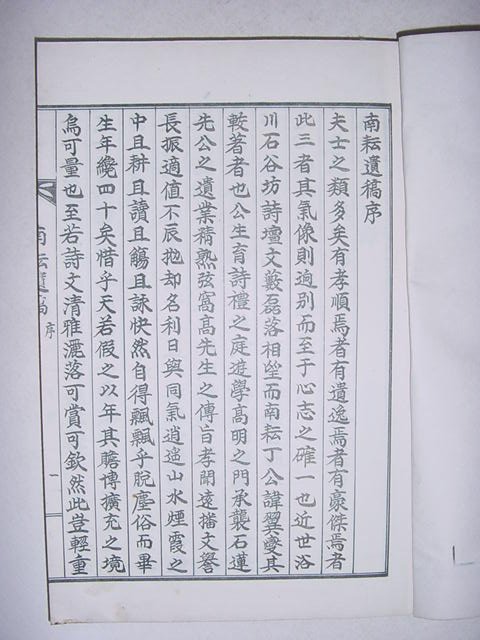 南耘遺稿序
夫士之類多矣有孝順焉者有遺逸焉者有豪傑焉者
此三者其氣像則逈別而至于心志之確一也近世洛
川石谷坊詩壇文藪磊落相望而南耘丁公諱翼燮其
較著者也公生育詩禮之庭遊學高明之門承襲石蓮
先公之遺業精熟弦窩高先生之傳旨孝聞遠播文譽
長振適值不辰抛却名利日與同氣逍遙山水煙霞之
中且耕且讀且觴且詠快然自得飄飄乎脫塵俗而畢
生年纔四十矣惜乎天若假之以年其贍博擴充之境
烏可量也至若詩文清雅灑落可賞可欽然此豈輕重
南耘遺稿
序
一